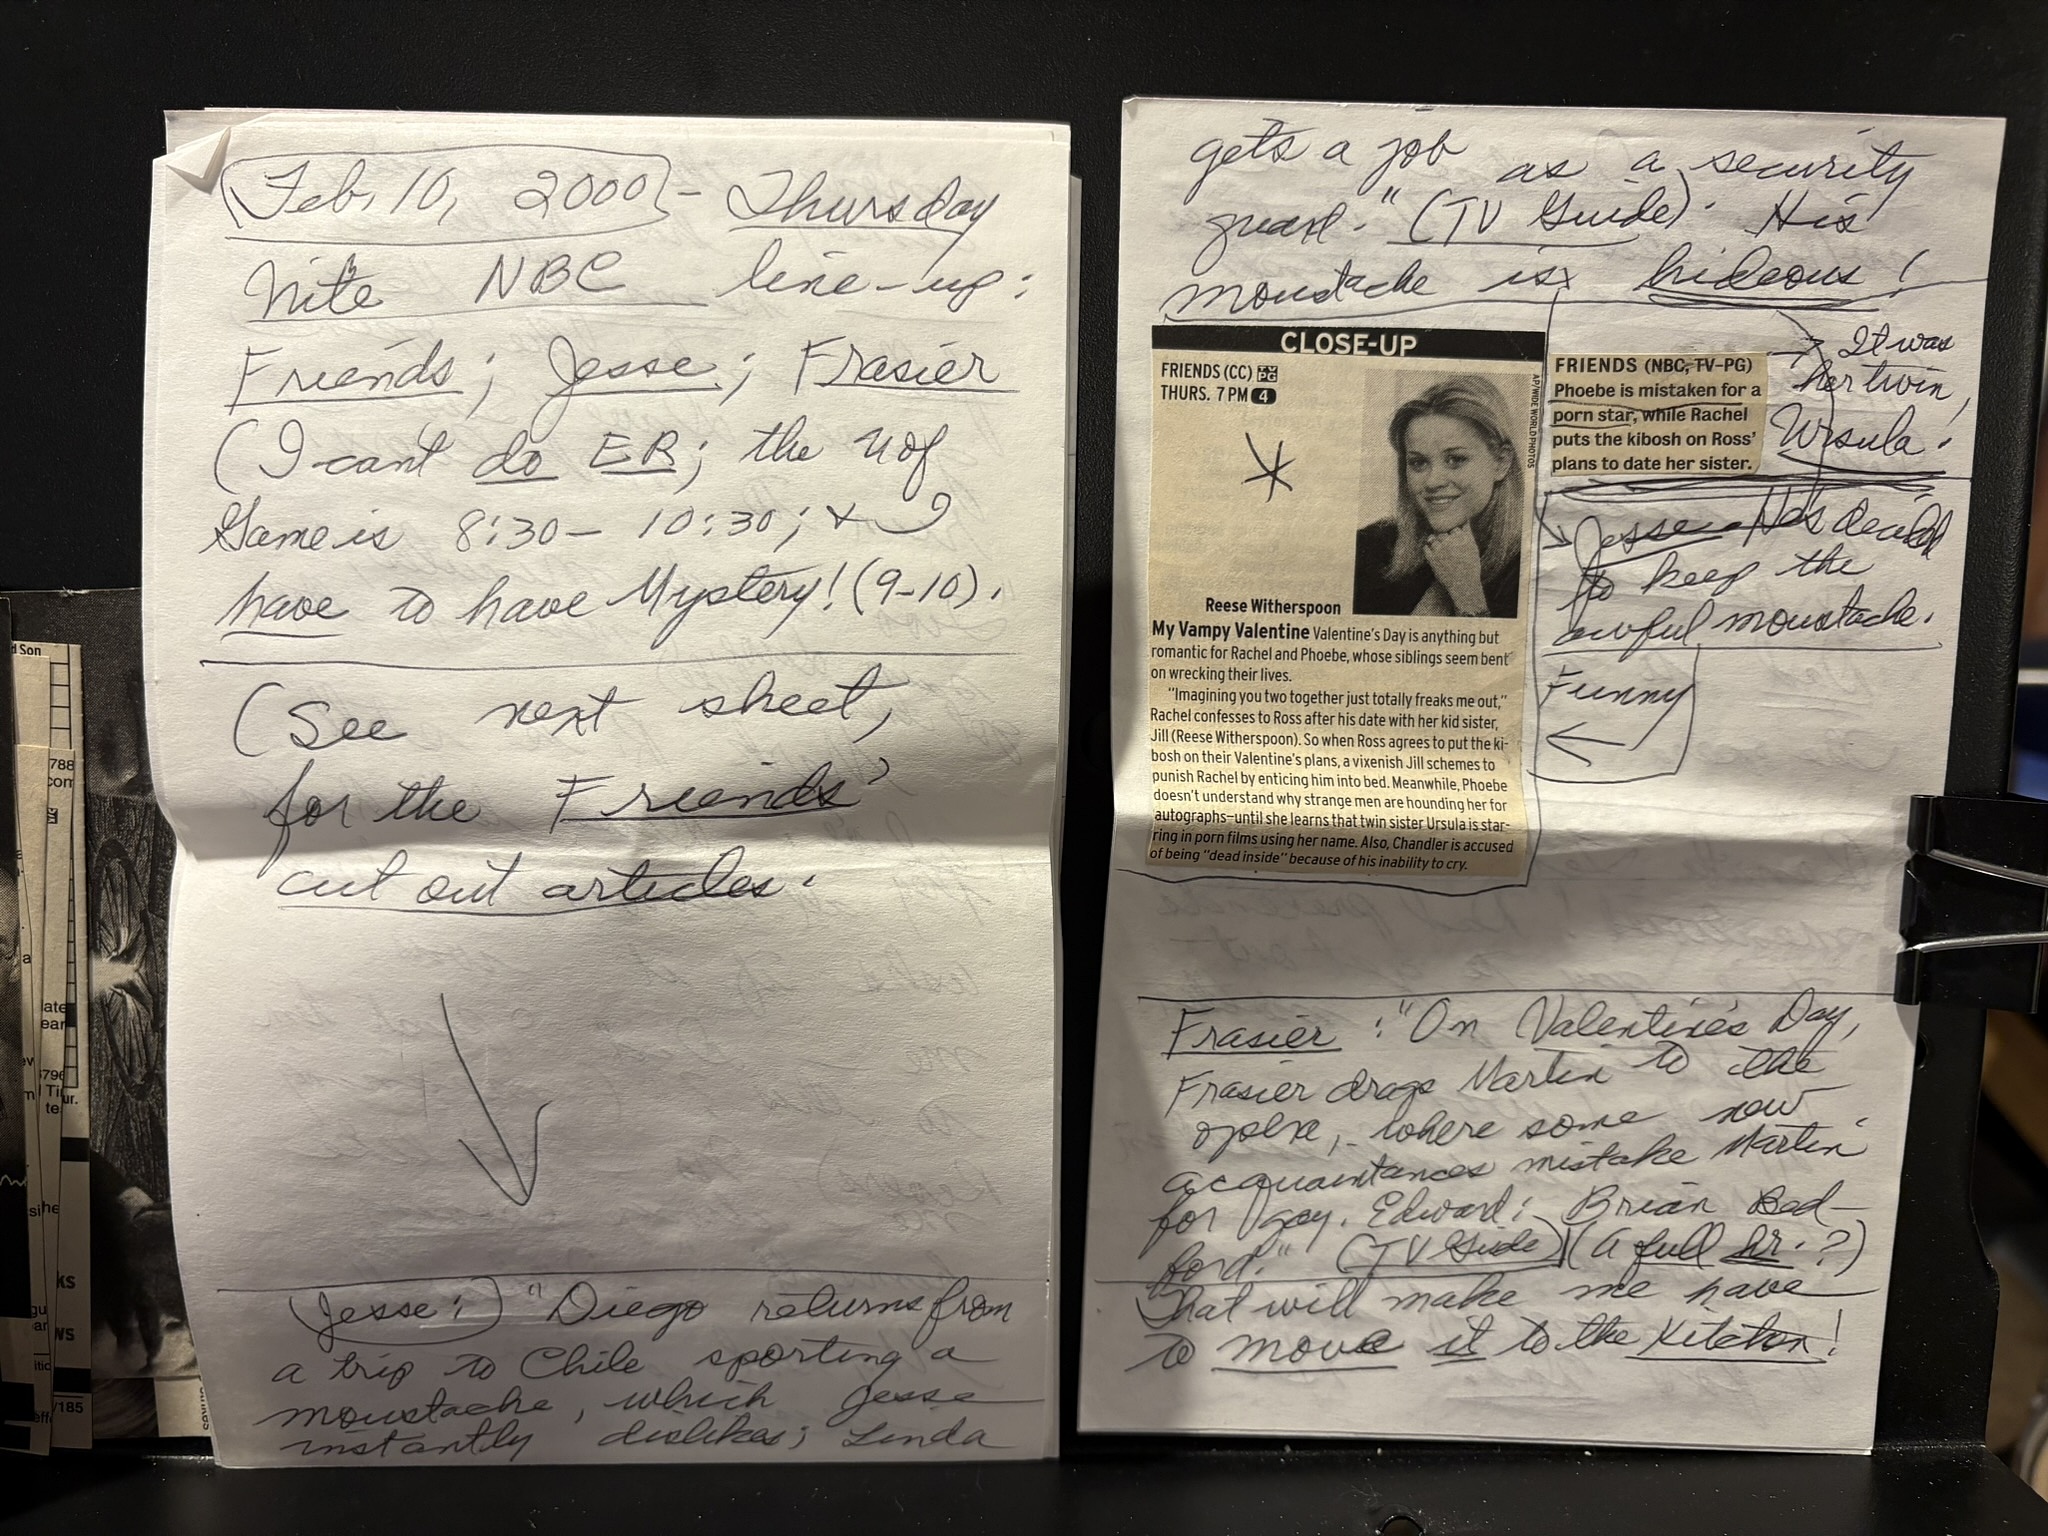 Feb. 10, 2000 - Thursday
Nite NBC line-up:
Friends; Jesse; Frasier
(I can't do ER; the U of
Game is 8:30 - 10:30; + I
have to have Mystery! (9-10).
(See next sheet,
for the Friends'
cut out articles.
Jesse: "Diego returns from
a trip to Chile sporting a
moustache, which Jesse
instantly dislikes; Linda
gets a job as a security
guard." (TV Guide). His
moustache is hideous!
CLOSE-UP
FRIENDS (CC) TV PG
THURS. 7 PM 4
AP/WIDE WORLD PHOTOS
Reese Witherspoon
My Vampy Valentine Valentine's Day is anything but
romantic for Rachel and Phoebe, whose siblings seem bent
on wrecking their lives.
"Imagining you two together just totally freaks me out,"
Rachel confesses to Ross after his date with her kid sister,
Jill (Reese Witherspoon). So when Ross agrees to put the ki-
bosh on their Valentine's plans, a vixenish Jill schemes to
punish Rachel by enticing him into bed. Meanwhile, Phoebe
doesn't understand why strange men are hounding her for
autographs—until she learns that twin sister Ursula is star-
ring in porn films using her name. Also, Chandler is accused
of being "dead inside" because of his inability to cry.
FRIENDS (NBC, TV-PG)
Phoebe is mistaken for a
porn star, while Rachel
puts the kibosh on Ross'
plans to date her sister.
It was
her twin,
Ursula!
Jesse - Has decided
to keep the
awful moustache.
Funny
Frasier: "On Valentine's Day,
Frasier drags Martin to the
opera, where some new
acquaintances mistake Martin
for gay. Edward: Brian Bed-
ford." (TV Guide) (A full hr.?)
That will make me have
to move it to the Kitchen!